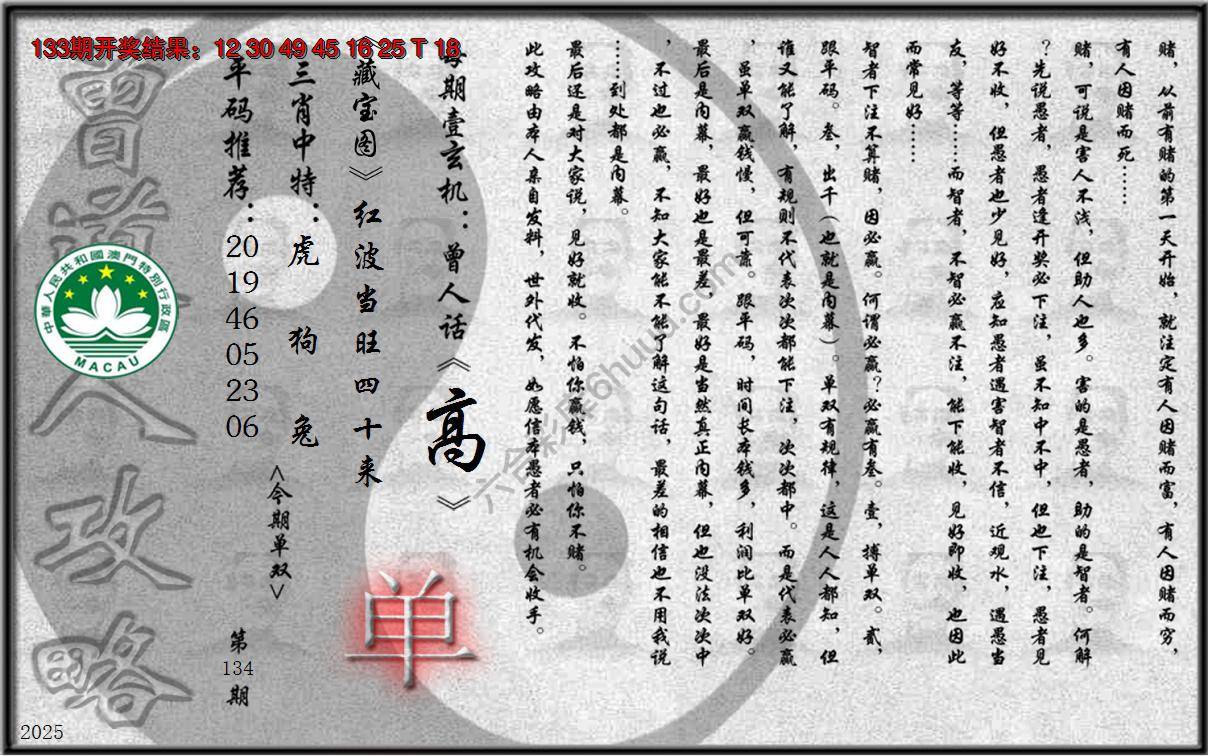 133期开奖结果：12 30 49 45 16 25 T 18
赌，从前有赌的第一天开始，就注定有人因赌而富，有人因赌而穷，
有人因赌而死……
赌，可说是害人不浅，但助人也多。害的是愚者，助的是智者。何解
？先说愚者，愚者逢开奖必下注，虽不知中不中，但也下注，愚者见
好不收，但愚者也少见好，应知愚者遇害智者不信，近观水，遇愚当
友，等等……而智者，不智必赢不注，能下能收，见好即收，也因此
而常见好……
智者下注不算赌，因必赢。何谓必赢？必赢有叁。壹，搏单双。贰，
跟平码。叁，出千（也就是内幕）。单双有规律，这是人人都知，但
谁又能了解，有规则不代表次次都能下注，次次都中。而是代表必赢
，虽单双赢钱慢，但可靠。跟平码，时间长本钱多，利润比单双好。
最后是内幕，最好也是最差，最好是当然真正内幕，但也没法次次中
，不过也必赢，不知大家能不能了解这句话，最差的相信也不用我说
……到处都是内幕。
最后还是对大家说，见好就收。不怕你赢钱，只怕你不赌。
此攻略由本人亲自发料，世外代发，如愿信本愚者必有机会收手。
每期壹玄机：曾人话《高》
《藏宝图》红波当旺四十来
三肖中特：虎 狗 兔
平码推荐：20 19 46 05 23 06
<今期单双>
单
第134期
曾道人攻略
中華人民共和國澳門特別行政區
MACAU
六合彩库6huuu.com
2025